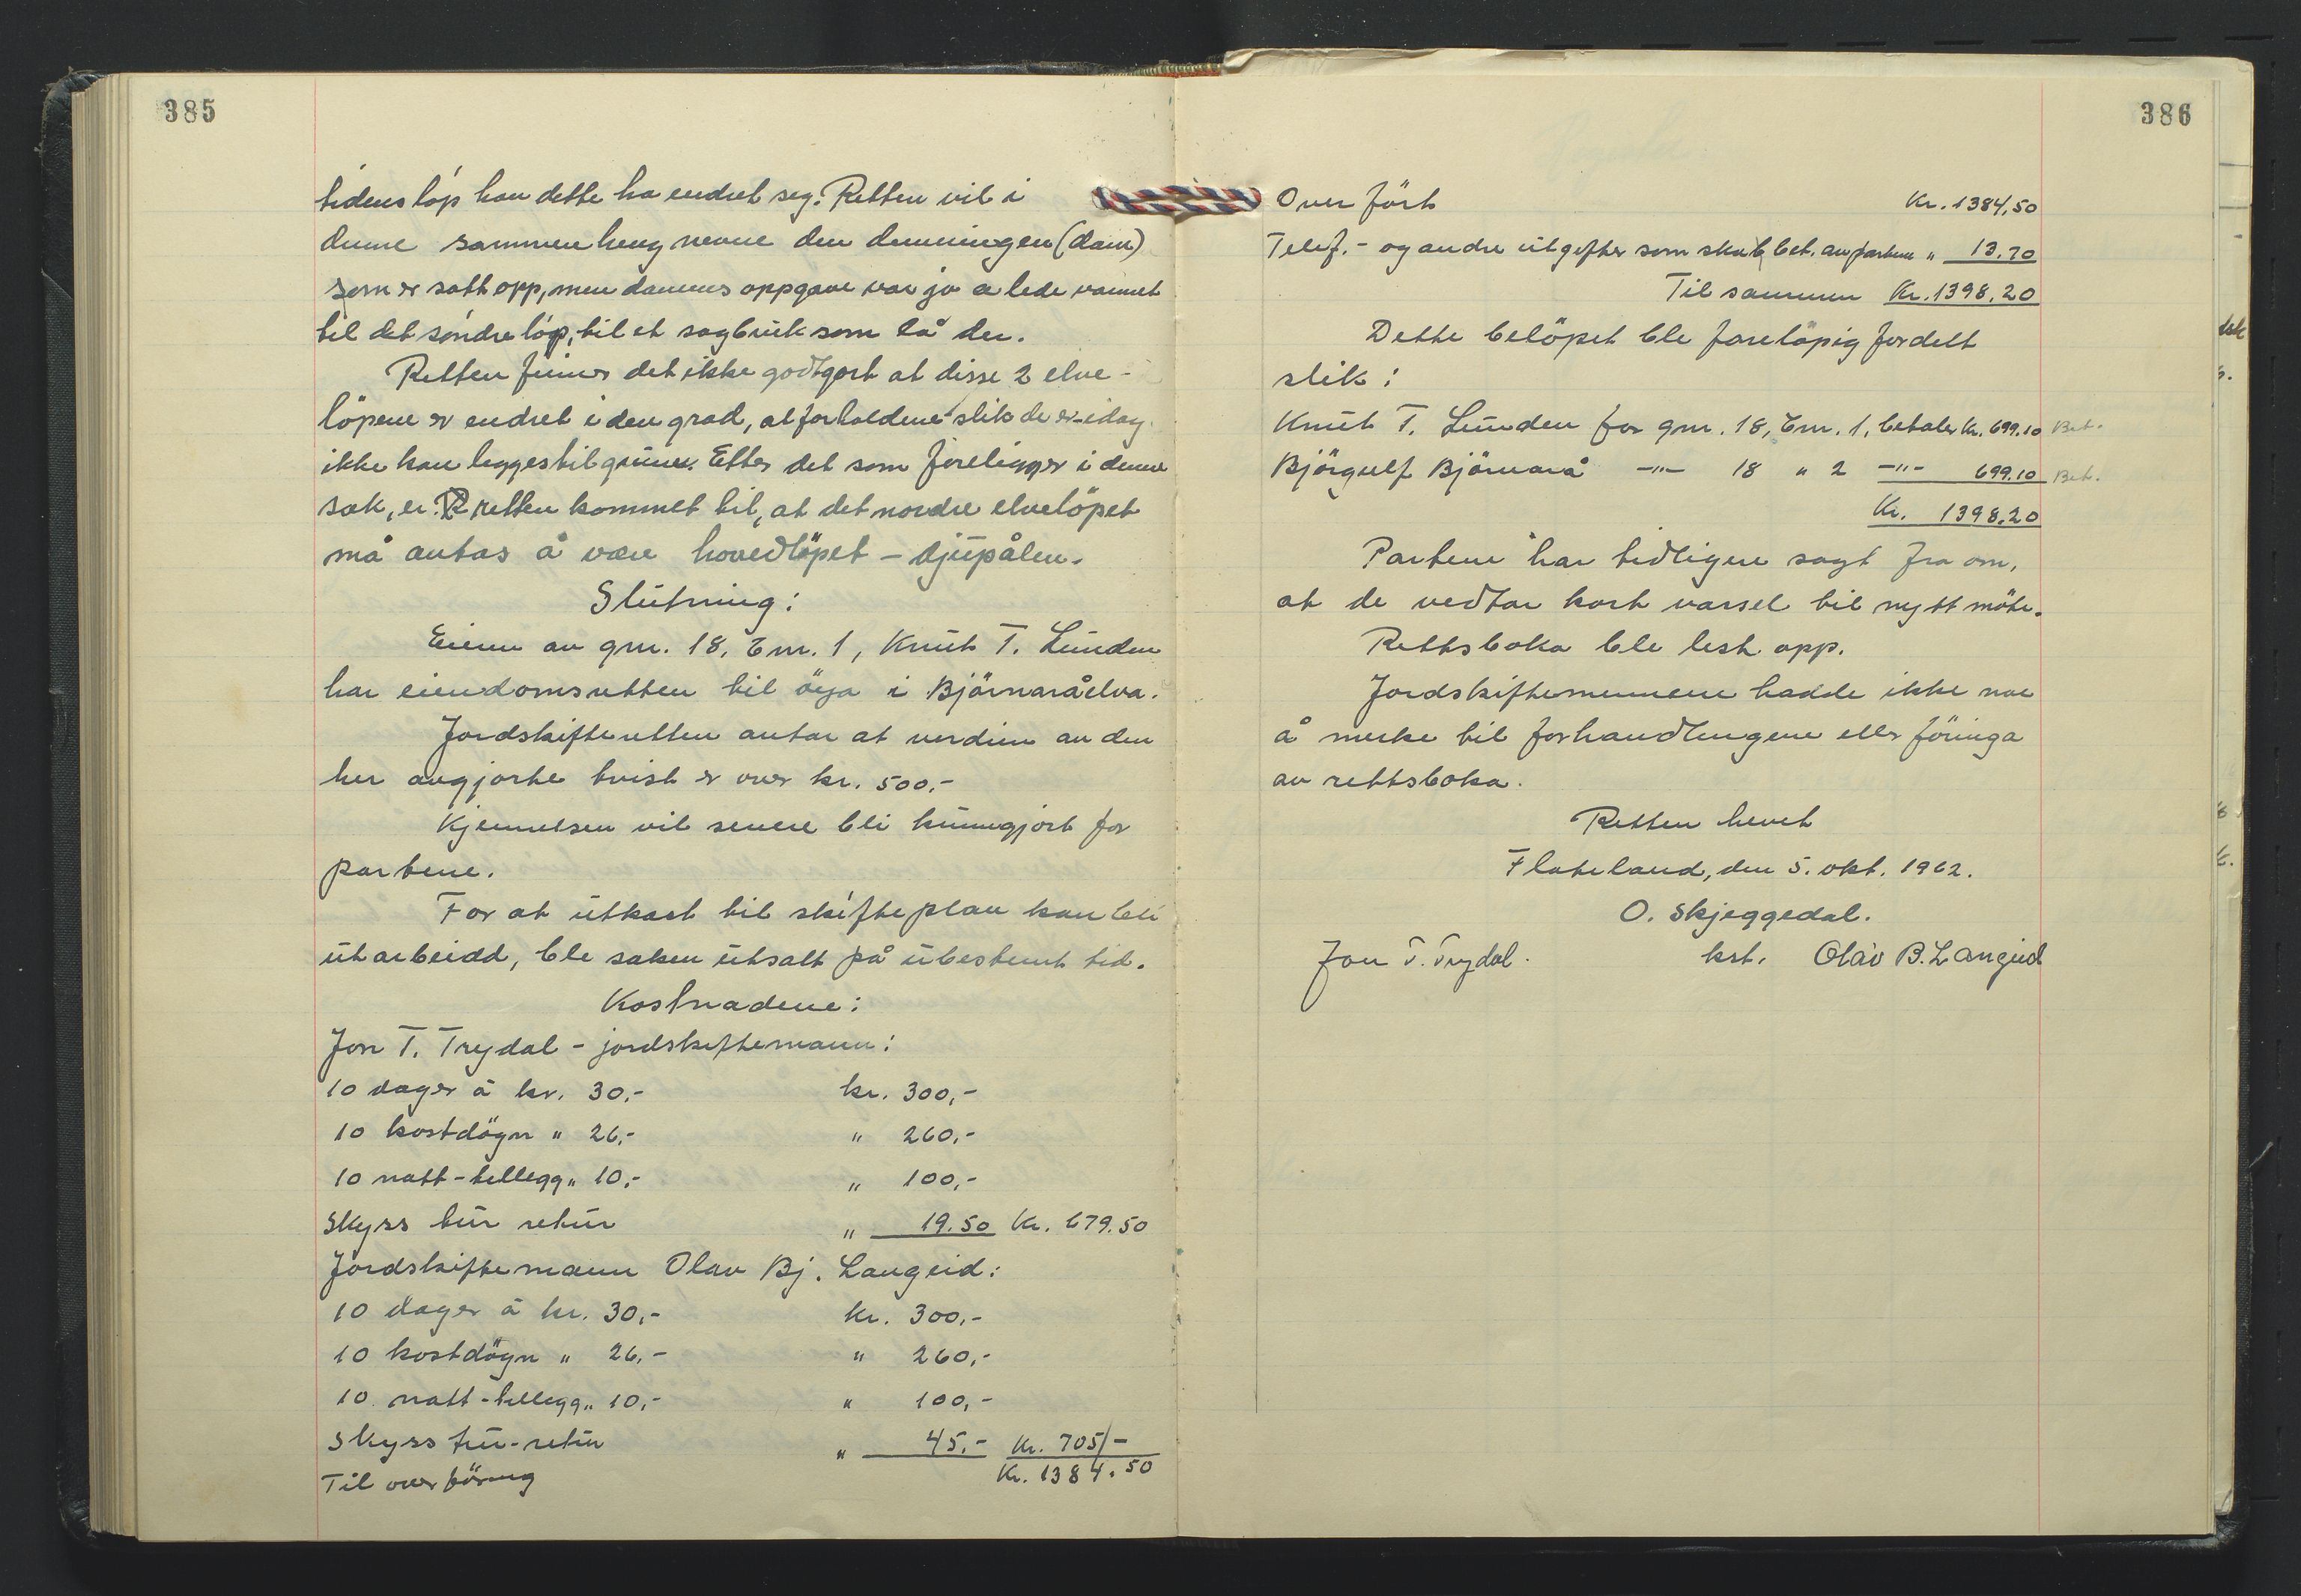 385
tidens löp kan dette ha endret seg. Retten vil i
denne sammenheng nevne den demningen (dam)
som er satt opp, men dammens oppgave var jo å lede vannet
til det söndre löp, til et sagbruk som lå der.
Retten finner det ikke godtgort at disse 2 elve-
löpene er endret i den grad, at forholdene slik de er idag
ikke kan legges til grunn. Etter det som foreligger i denne
sak, er retten kommet til, at det nordre elvelöpet
må antas å være hovedlöpet - djupålen.
Slutning:
Eieren av gnr. 18, bnr. 1, Knut T. Lunden
har eiendomsretten til öya i Björnaråelva.
Jordskifteretten antar at verdien av den
her avgjorte tvist er over kr. 500,-
Kjennelsen vil senere bli kunngjort for
partene.
For at utkast til skifteplan kan bli
utarbeidd, ble saken utsatt på ubestemt tid.
Kostnadene:
Jon T. Trydal - jordskiftemann:
10 dager å kr. 30,- kr. 300,-
10 kostdögn " 26,- " 260,-
10 natt-tillegg " 10,- " 100,-
Skyss tur retur " 19.50 Kr. 679.50
Jordskiftemann Olav Bj. Langeid:
10 dager å kr. 30,- kr. 300,-
10 kostdögn " 26,- " 260,-
10 natt-tillegg " 10,- " 100,-
Skyss tur-retur " 45,- Kr. 705,-
Til overföring Kr. 1384.50
386
Overfört Kr. 1384,50
Telef.- og andre utgifter som skal bet. av partene " 13.70
Til sammen Kr. 1398.20
Dette belöpet ble forelöpig fordelt
slik:
Knut T. Lunden for gnr. 18, bnr. 1, betaler kr. 699.10 Bet.
Björgulf Björnarå -"- 18 " 2 -"- 699.10 Bet.
Kr. 1398.20
Partene har tidligere sagt fra om,
at de vedtar kort varsel til nytt möte.
Rettsboka ble lest opp.
Jordskiftemennene hadde ikke noe
å merke til forhandlingene eller föringa
av rettsboka.
Retten hevet
Flateland, den 5. okt. 1962.
O. Skjeggedal.
Jon T. Trydal. kst. Olav B. Langeid